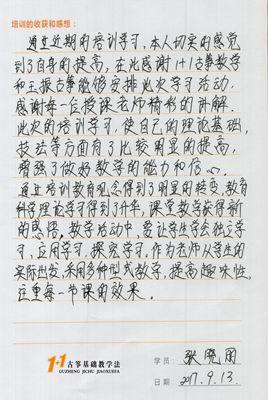 培训的收获和感想：
通过近期的培训学习，本人切实的感觉
到了自身的提高，在此感谢1+1古筝教学
和王振古筝能够安排此次学习活动，
感谢每一位授课老师精彩的讲解。
此次的培训学习，使自己的理论基础，
技法等方面有了比较明显的提高，
增强了做好教学的能力和信心。
通过培训教育观念得到了明显的转变，教育
科学理论学习得到了升华，课堂教学获得新
的感悟，教学活动中，要让学生学会独立学
习，应用学习，探究学习。作为老师从学生的
实际出发，采用多种型式教学，提高趣味性，
注重每一节课的效果。
1+1 古筝基础教学法
GUZHENG JICHU JIAOXUEFA
学员：张晓
日期：2017.9.13.